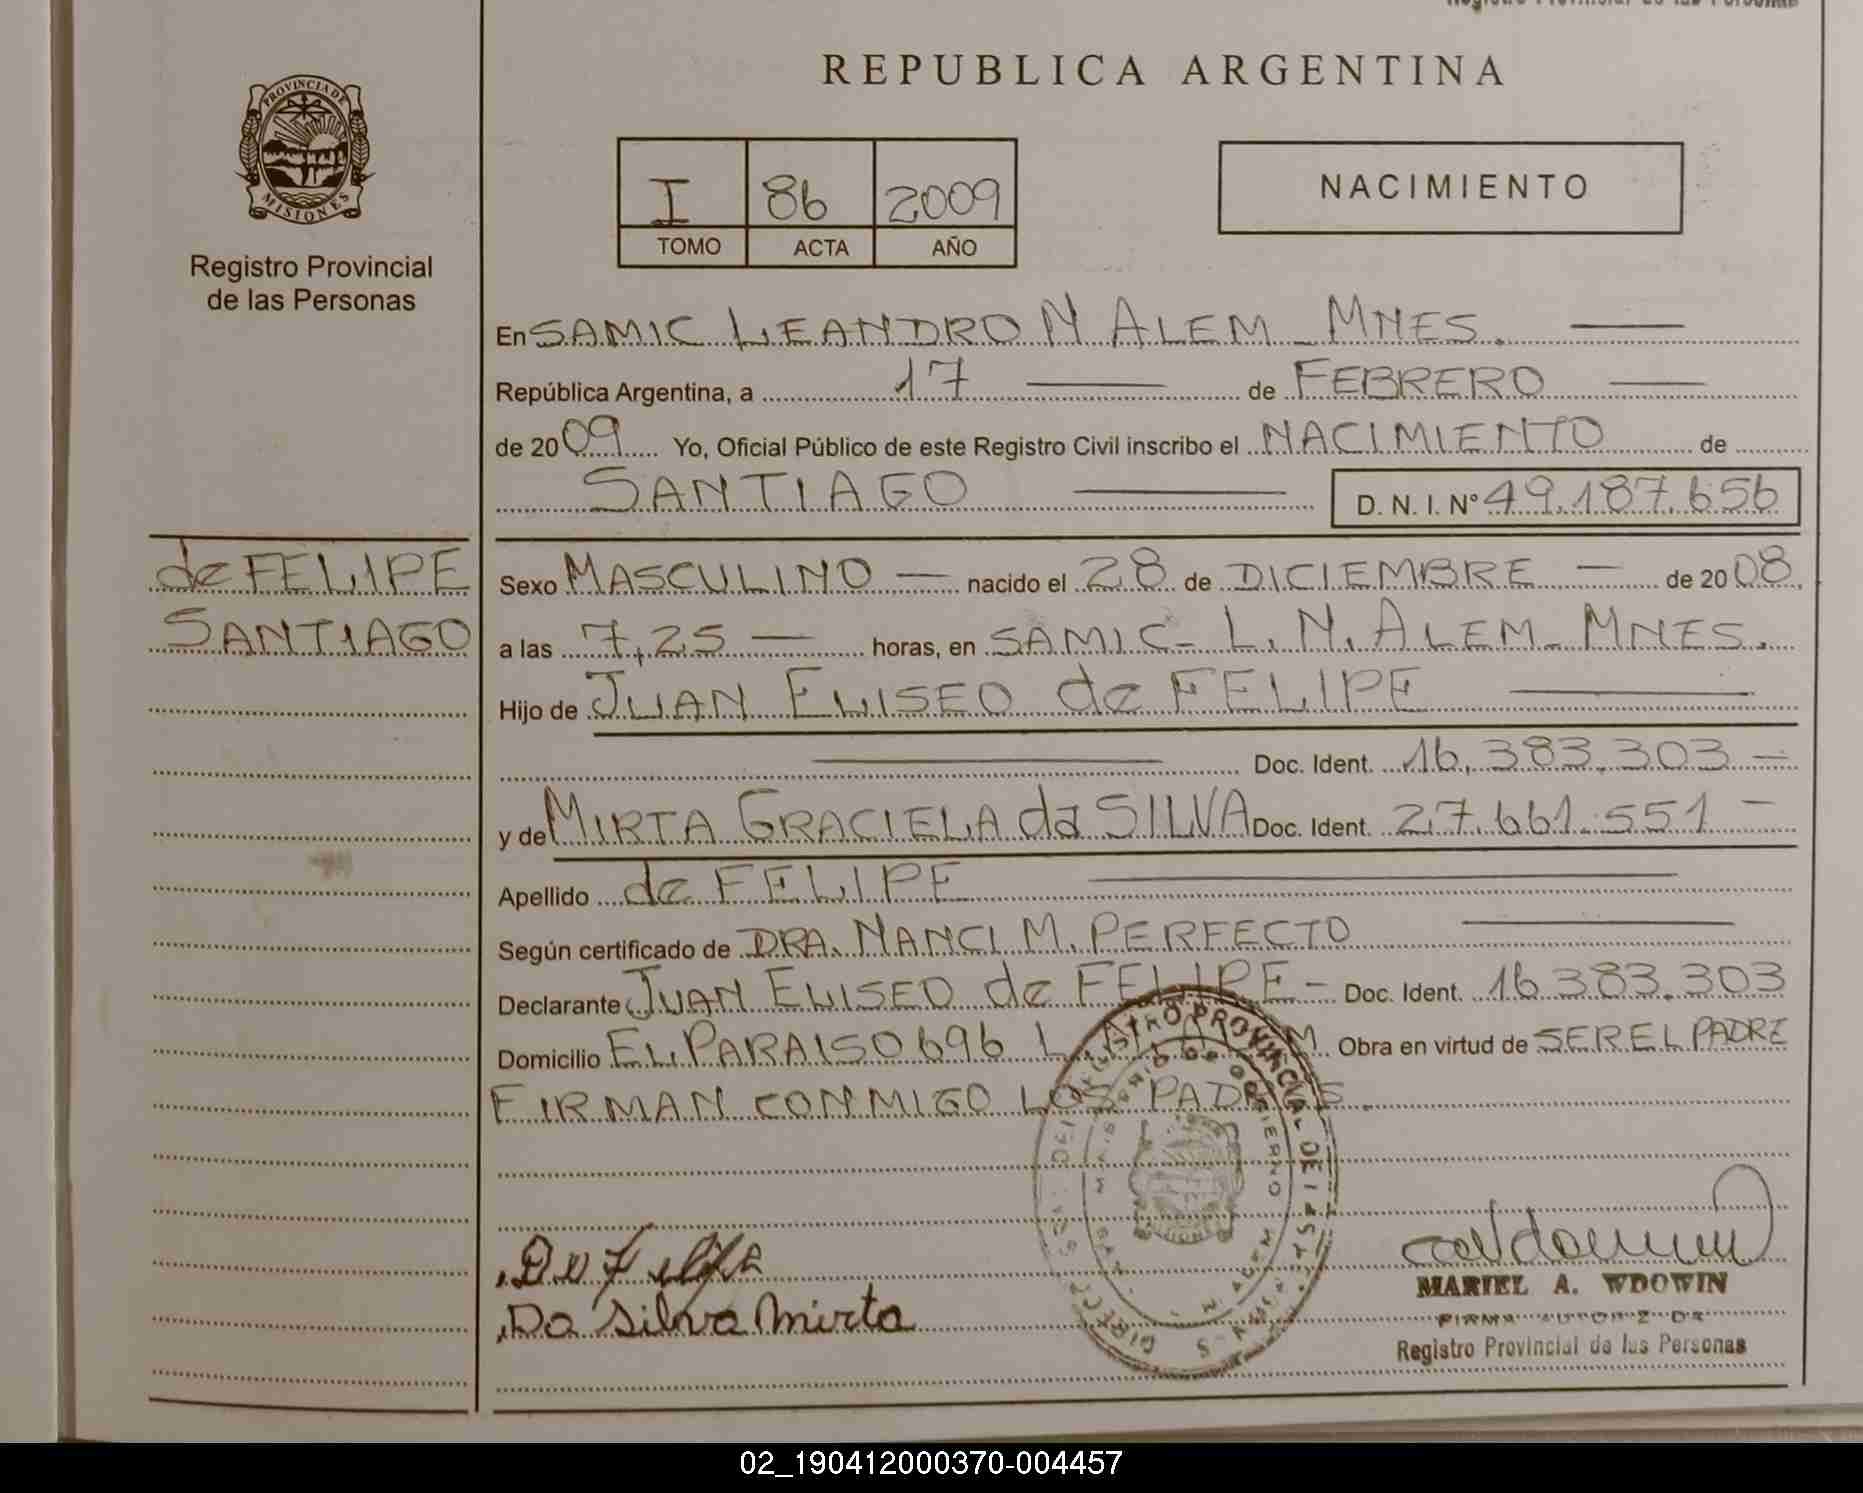 Registro Provincial de las Personas
REPUBLICA ARGENTINA
PROVINCIA DE
MISIONES
Registro Provincial
de las Personas
I 86 2009
TOMO ACTA AÑO
NACIMIENTO
En SAMIC LEANDRO N ALEM - MNES.
República Argentina, a 17 de FEBRERO
de 2009 Yo, Oficial Público de este Registro Civil inscribo el NACIMIENTO de
SANTIAGO D. N. I. Nº 49.187.656
de FELIPE
SANTIAGO
Sexo MASCULINO — nacido el 28 de DICIEMBRE — de 2008
a las 7,25 — horas, en SAMIC - L. N. ALEM - MNES.
Hijo de JUAN ELISEO de FELIPE
Doc. Ident. 16.383.303 —
y de MIRTA GRACIELA da SILVA Doc. Ident. 27.661.551 —
Apellido de FELIPE
Según certificado de DRA. NANCI M. PERFECTO
Declarante JUAN ELISEO de FELIPE - Doc. Ident. 16.383.303
Domicilio EL PARAISO 696 L. M Obra en virtud de SER EL PADRE
FIRMAN CONMIGO LOS PADRES.
REGISTRO PROVINCIAL DE LAS PERSONAS
MINISTERIO DE GOBIERNO
De Felipe
Da Silva Mirta
MARIEL A. WDOWIN
FIRMA AUTORIZADA
Registro Provincial de las Personas
02_190412000370-004457